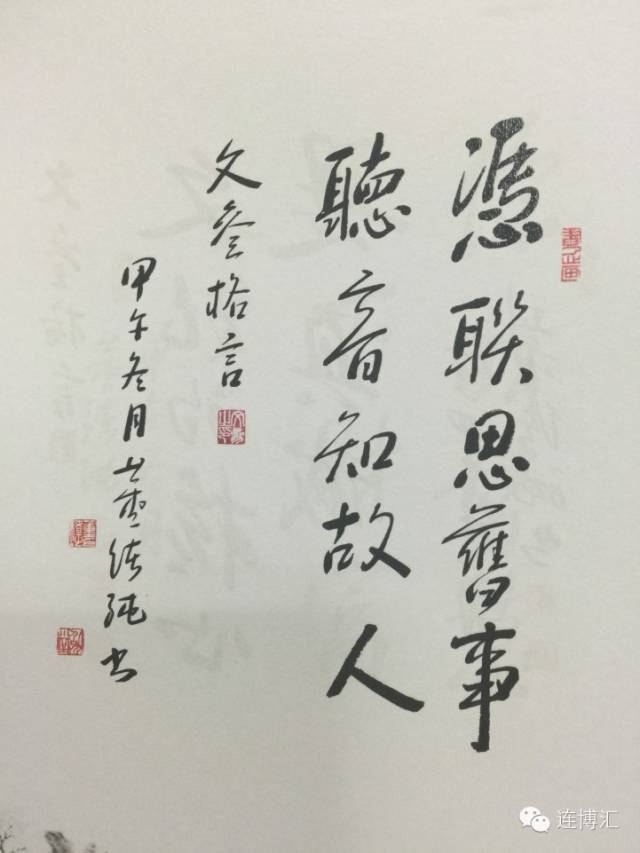 憑聯思舊事
聽音知故人
文叁格言
甲午冬月
书
连博汇